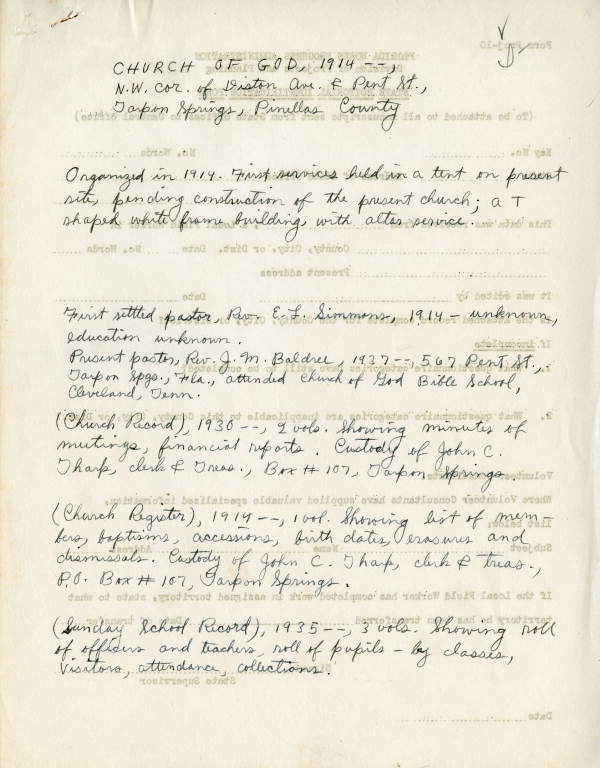 CHURCH OF GOD, 1914 --,
N.W. cor. of Diston Ave. & Pent St.,
Tarpon Springs, Pinellas County
Organized in 1914. First services held in a tent on present
site, pending construction of the present church; a T
shaped white frame building, with altar service.
First settled pastor, Rev. E. L. Simmons, 1914 - unknown,
education unknown.
Present pastor, Rev. J. M. Baldree, 1937--, 567 Pent St.,
Tarpon Spgs., Fla., attended church of God Bible School,
Cleveland, Tenn.
(Church Record), 1930--, 2 vols. Showing minutes of
meetings, financial reports. Custody of John C.
Tharp, clerk & Treas., Box # 107, Tarpon Springs.
(Church Register), 1914--, 1 vol. Showing list of mem-
bers, baptisms, accessions, birth dates, erasures and
dismissals. Custody of John C. Tharp, clerk & treas.,
P.O. Box # 107, Tarpon Springs.
(Sunday School Record), 1935--, 3 vols. Showing roll
of officers and teachers, roll of pupils - by classes,
Visitors, attendance, collections.